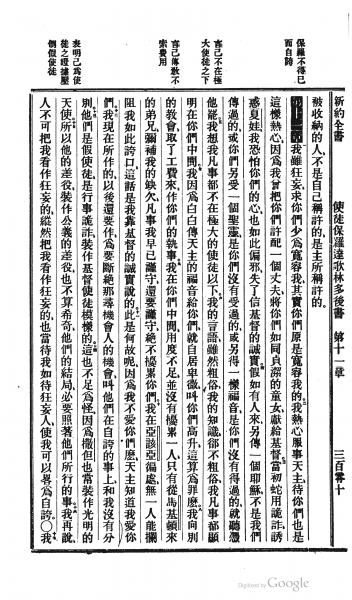 新約全書　使徒保羅達歌林多後書　第十一章　三百零十
保羅不得已
而自誇
言己不在極
大使徒之下
言己傳教不
索費用
表明己為使
徒之證據壓
倒假使徒
被收納的人、不是自己稱許的、是主所稱許的。
第十一章 我雖狂妄、求你們少為寬容我、其實你們原是寬容我的。我熱心服事天主、待你們也是
這樣熱心、因為我曾把你們許配一個丈夫、將你們如同貞潔的童女、獻給基督。當初蛇用詭詐誘
惑夏娃、我恐怕你們的心、也如此偏邪、失了信基督的誠實。假如有人來另傳一個耶穌、不是我們
傳過的、或你們另受一個聖靈、是你們沒有受過的、或另得一樣福音、是你們沒有得過的、就聽憑
他罷。我想我凡事都不在極大的使徒以下。我的言語雖然粗俗、我的知識卻不粗俗、我凡事都顯
明在你們中間。因為我白白傳天主的福音給你們、就自居卑微、叫你們高升、這算為罪麼。我向別
的教會取了工費來、作你們的執事。我在你們中間用度不足、並沒有擾累一人、只有從馬基頓來
的弟兄、彌補我的缺欠、凡事我早已謹守、還要謹守、絕不擾累你們。我在亞該亞偏處、無一人能攔
阻我如此誇口、這話是我靠基督的誠實說的。此是何故呢、因為我不愛你們麼、天主知道我愛你
們。我現在所作的、以後還要作、為要斷絕那尋機會人的機會、叫他們在自誇的事上、和我沒有分
別。他們是假使徒、是行事詭詐、裝作基督使徒模樣的、這也不足為怪、因為撒但也常裝作光明的
天使、所以他的差役、裝作公義的差役、也不算希奇、他們的結局、必要照著他們所行的事。我再說、
人不可把我看作狂妄的、縱然把我看作狂妄的、也當待我如待狂妄人、使我可以畧為自誇。〇我
Digitized by Google